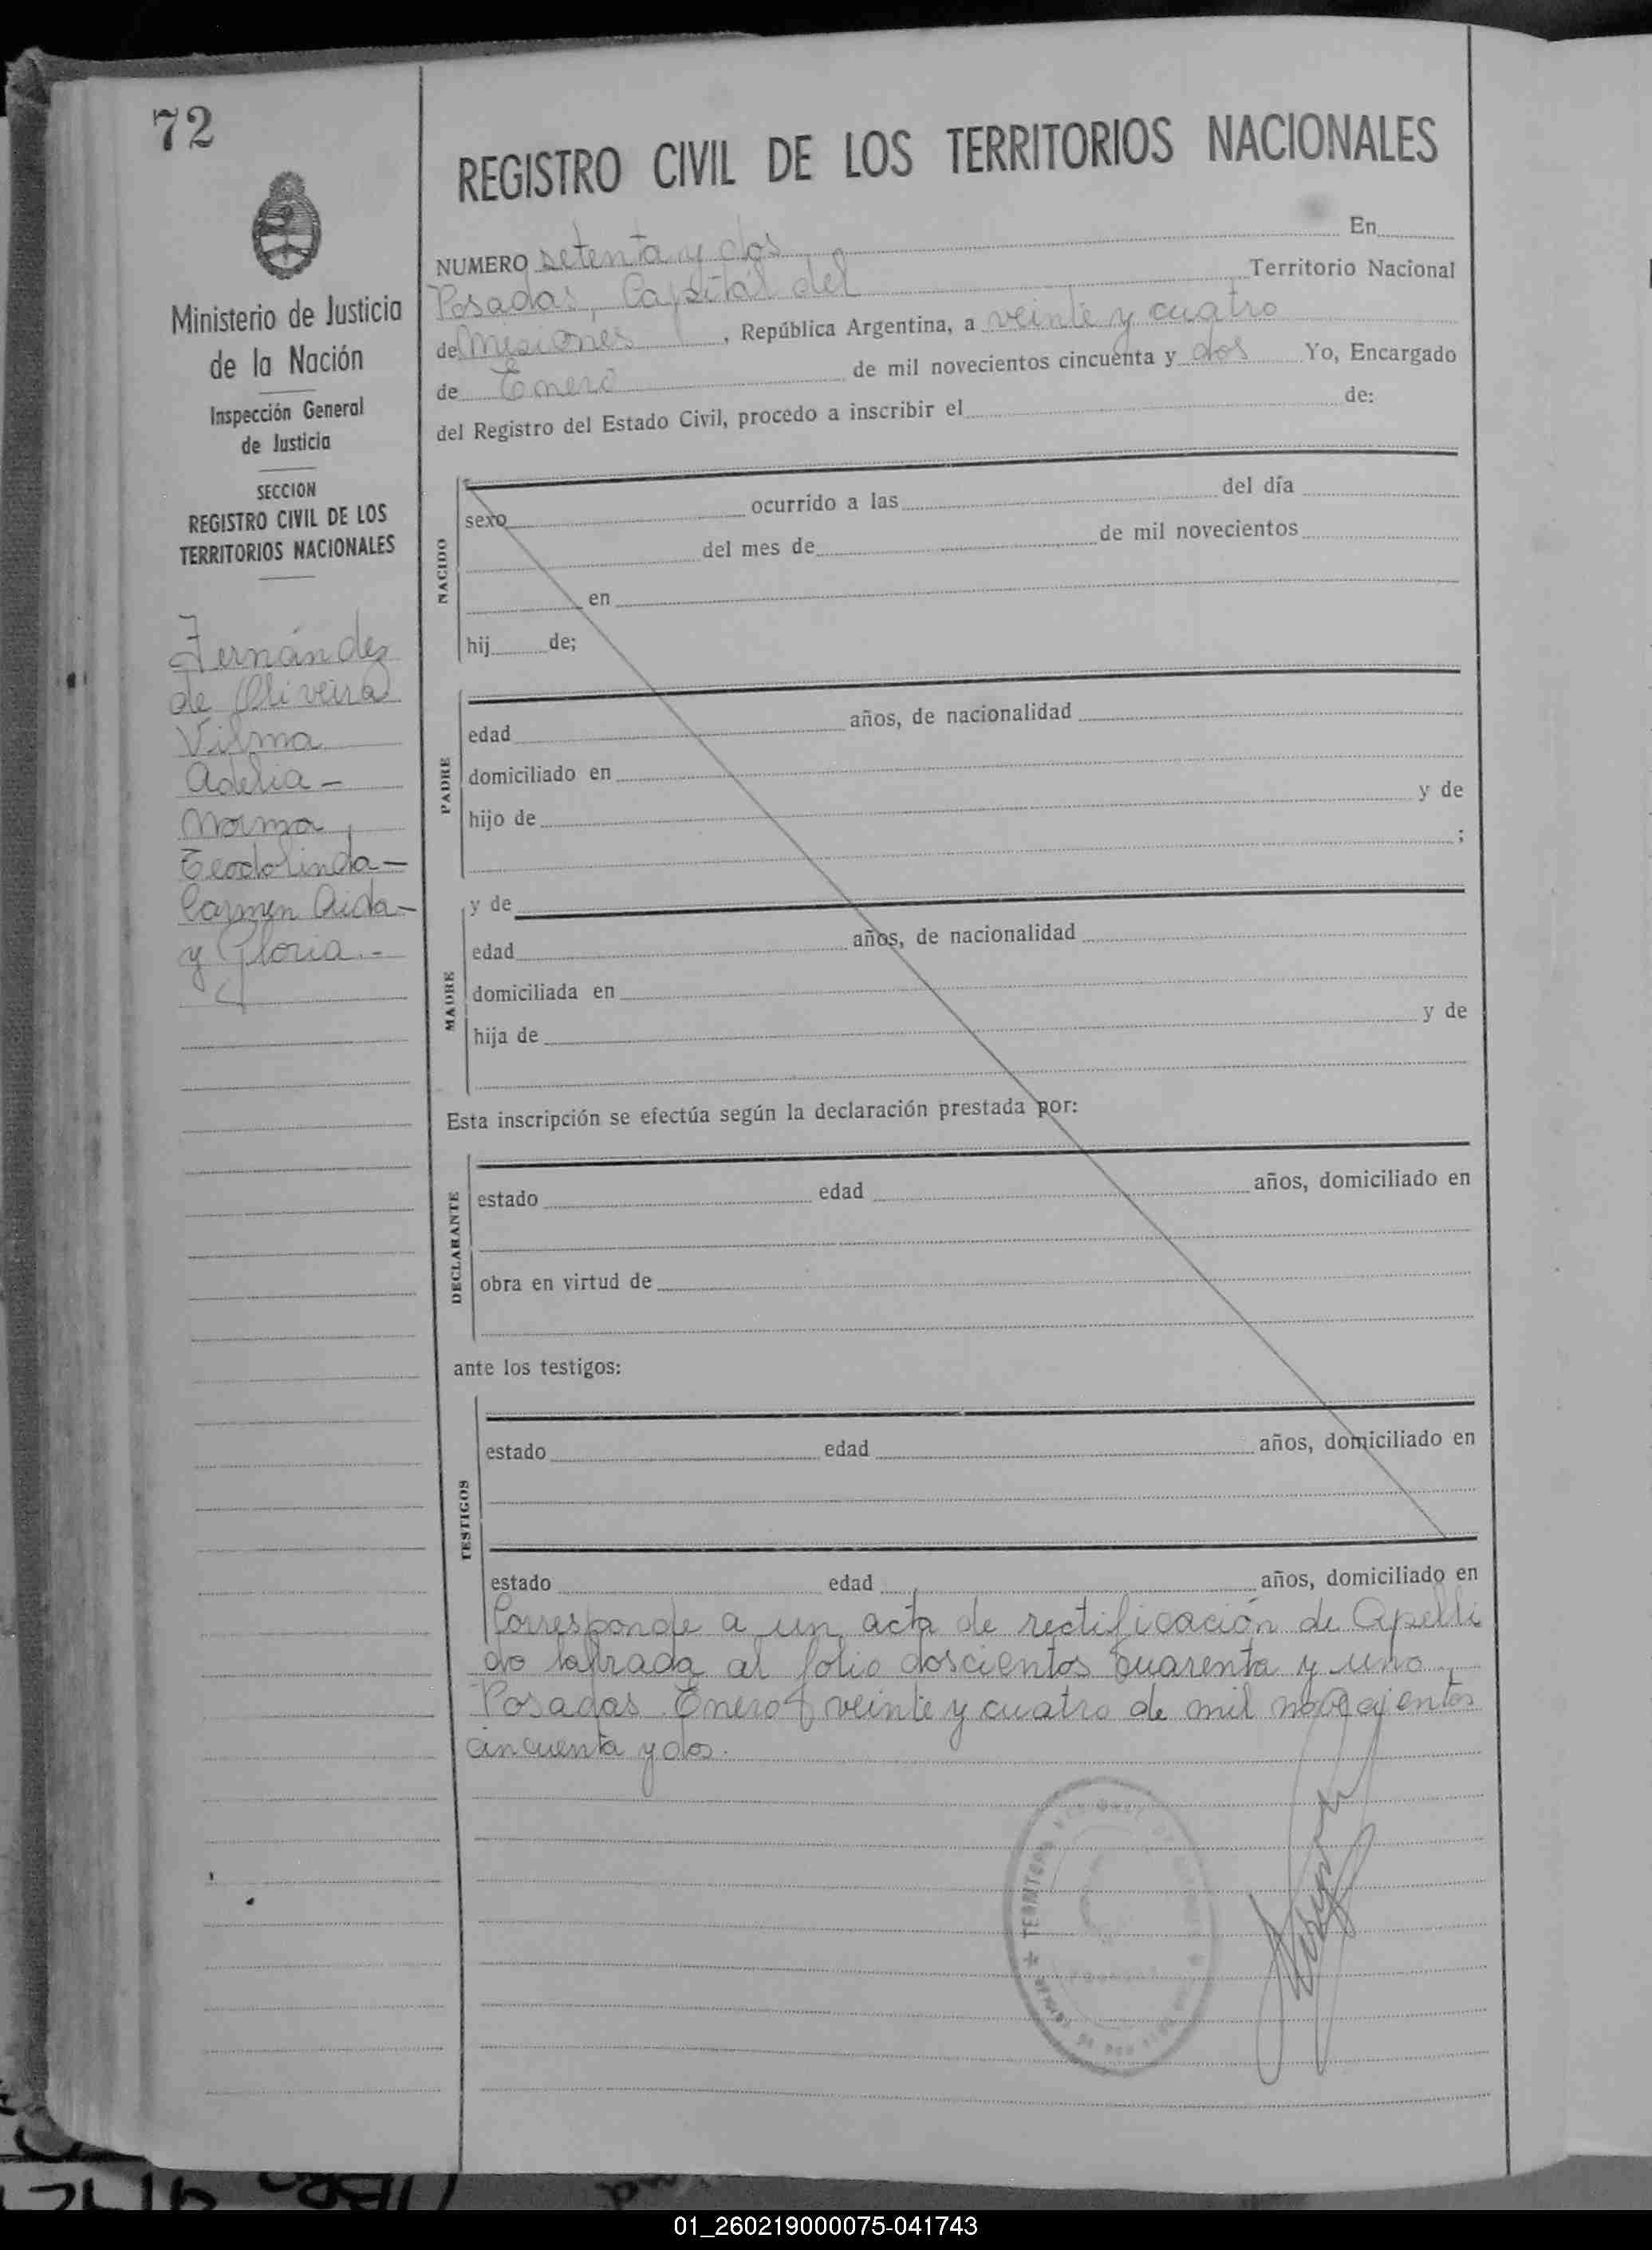 72
Ministerio de Justicia
de la Nación
Inspección General
de Justicia
SECCION
REGISTRO CIVIL DE LOS
TERRITORIOS NACIONALES
Fernández
de Oliveira
Vilma
Adelia -
Norma,
Teodolinda -
Carmen Aida -
y Gloria. -
REGISTRO CIVIL DE LOS TERRITORIOS NACIONALES
NUMERO setenta y dos En
Posadas, Capital del Territorio Nacional
de Misiones, República Argentina, a veinte y cuatro
de Enero de mil novecientos cincuenta y dos Yo, Encargado
del Registro del Estado Civil, procedo a inscribir el de:
NACIDO
sexo ocurrido a las del día
del mes de de mil novecientos
en
hij de;
PADRE
edad años, de nacionalidad
domiciliado en
hijo de y de
;
MADRE
y de
edad años, de nacionalidad
domiciliada en
hija de y de
Esta inscripción se efectúa según la declaración prestada por:
DECLARANTE
estado edad años, domiciliado en
obra en virtud de
ante los testigos:
TESTIGOS
estado edad años, domiciliado en
estado edad años, domiciliado en
Corresponde a un acta de rectificación de Apelli
do labrada al folio doscientos cuarenta y uno.
Posadas Enero veinte y cuatro de mil novecientos
cincuenta y dos.
TERRITORIO
01_260219000075-041743